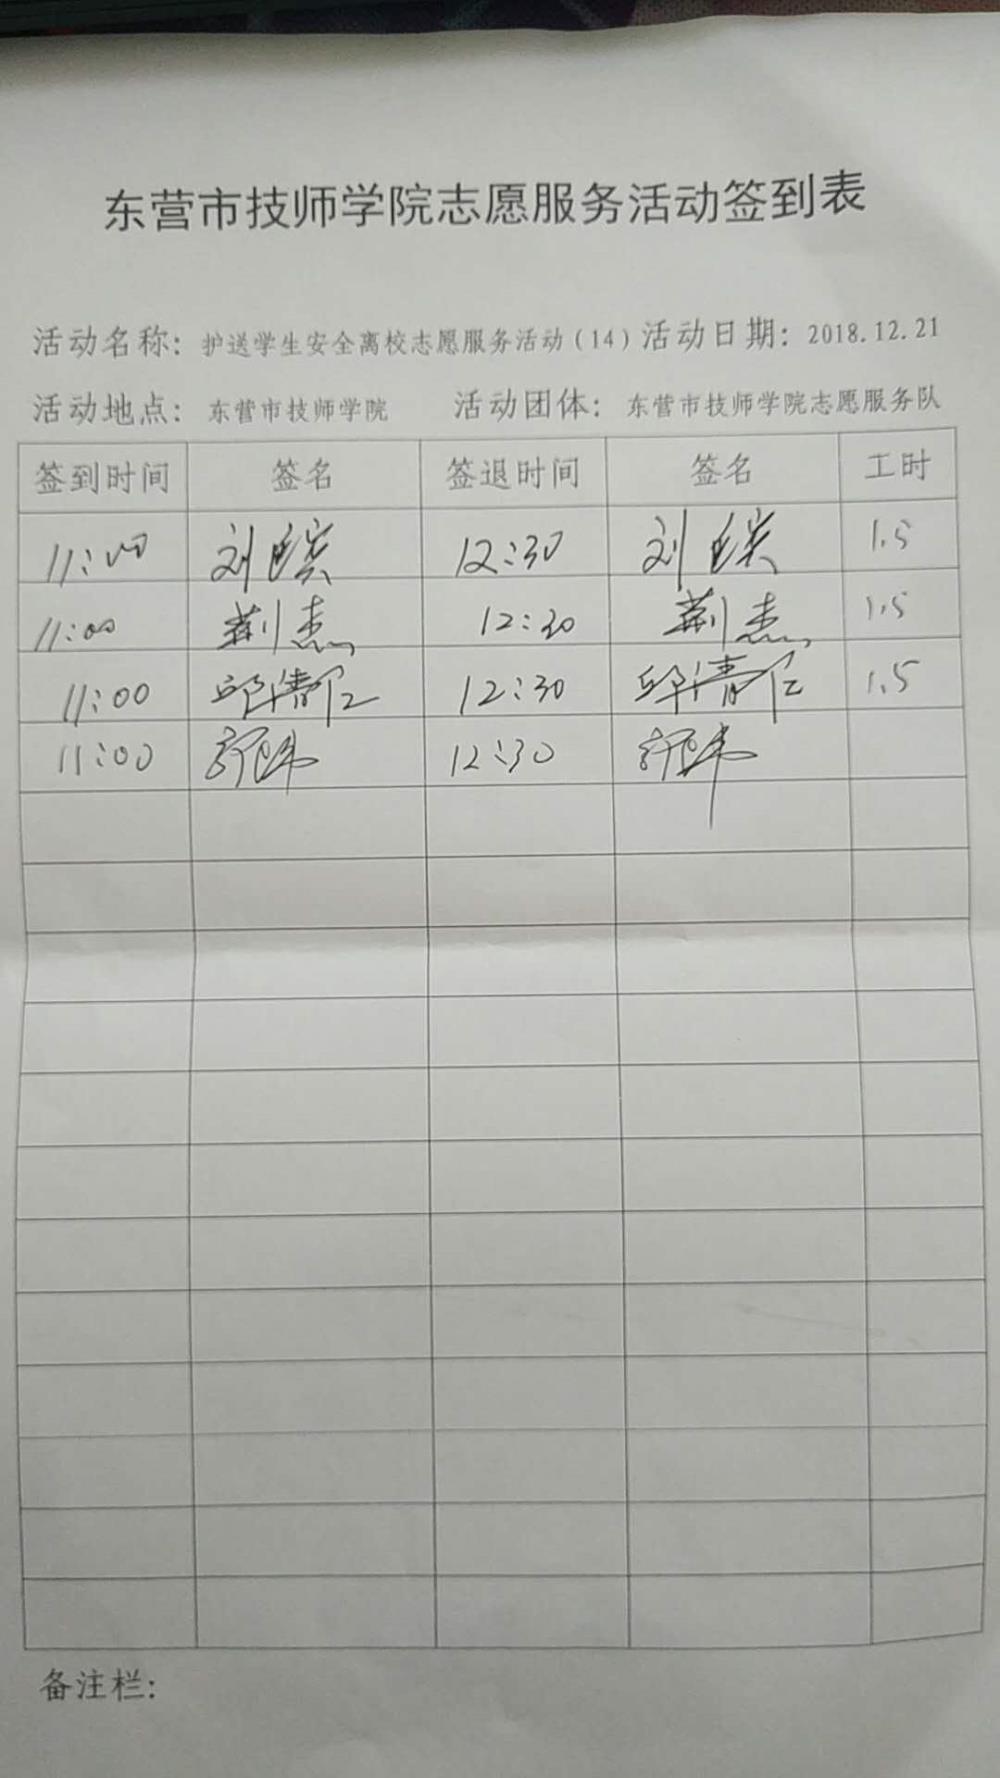 东营市技师学院志愿服务活动签到表
活动名称：护送学生安全离校志愿服务活动（14）活动日期：2018.12.21
活动地点：东营市技师学院 活动团体：东营市技师学院志愿服务队
签到时间 签名 签退时间 签名 工时
11:00 刘 12:30 刘 1.5
11:00 荆杰 12:30 荆杰 1.5
11:00 邱清仁 12:30 邱清仁 1.5
11:00 12:30
备注栏：